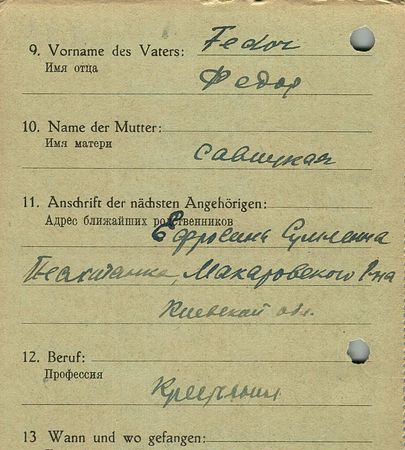 9. Vorname des Vaters: Fedor
Имя отца Федор
10. Name der Mutter:
Имя матери
Савицкая
11. Anschrift der nächsten Angehörigen:
Адрес ближайших родственников
Ефросинья
Макаровского р-на
Киевской обл.
12. Beruf:
Профессия
Крестьянин
13 Wann und wo gefangen: